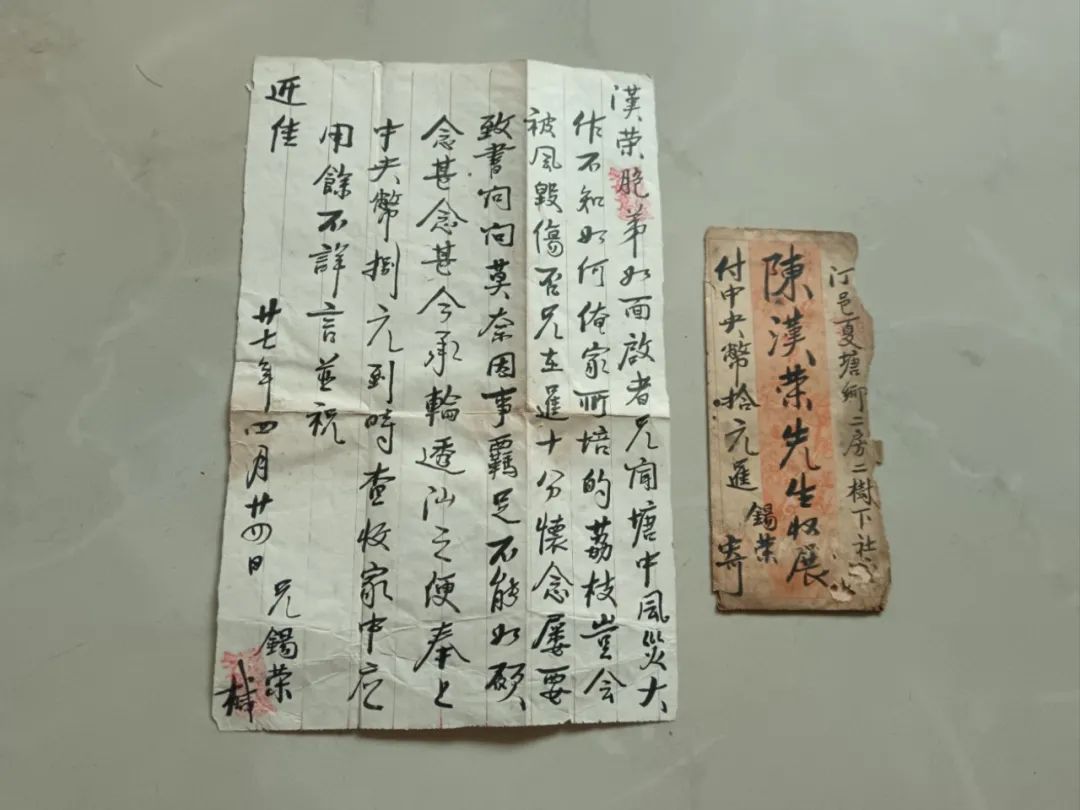 漢荣胞弟如面啟者兄闻塘中風災大
作不知如何俺家所培的荔枝豈会
被風毀傷否兄在暹十分懷念屡要
致書问问莫奈因事羈足不能如願
念甚念甚今承輪透汕之便奉上
中央幣捌元到時查收家中应
用餘不詳言並祝
近佳
兄錫荣
廿七年四月廿四日
椷
汀邑夏塘鄉二房二樹下社
陳漢荣先生收展
付中央幣拾元暹
錫荣
寄